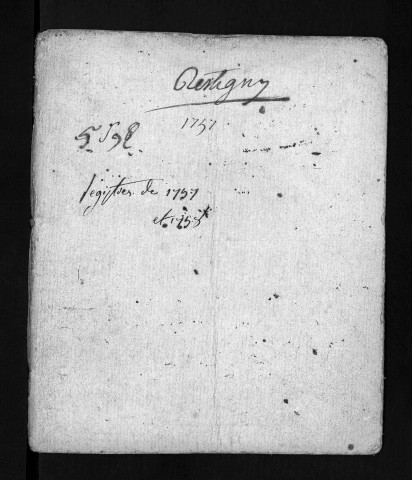 Restigny
1757
registres de 1757
et 1758